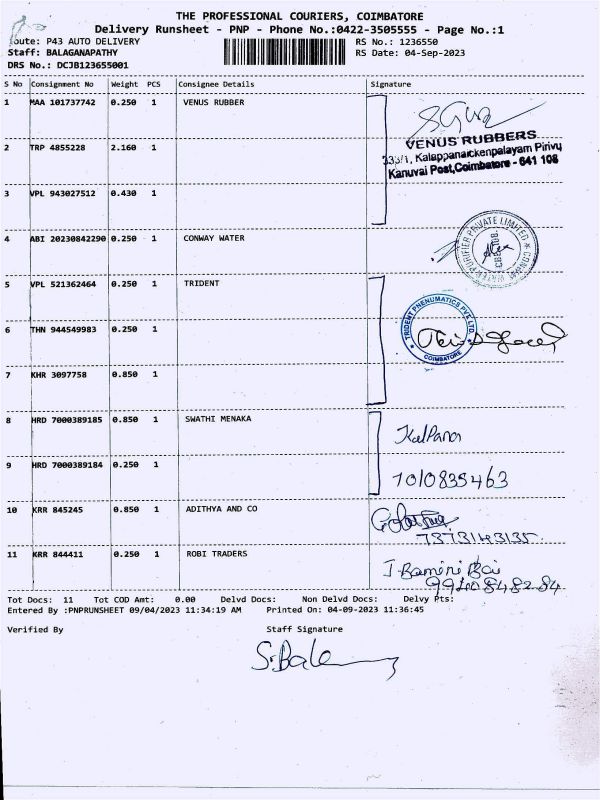 THE PROFESSIONAL COURIERS, COIMBATORE
Delivery Runsheet - PNP - Phone No.:0422-3505555 - Page No.:1
oute: P43 AUTO DELIVERY RS No.: 1236550
Staff: BALAGANAPATHY RS Date: 04-Sep-2023
DRS No.: DCJB123655001
S No Consignment No Weight PCS Consignee Details Signature
1 MAA 101737742 0.250 1 VENUS RUBBER
VENUS RUBBERS
2 TRP 4855228 2.160 1
333/1, Kalappanaickenpalayam Pirivu
Kanuvai Post,Coimbatore - 641 108
3 VPL 943027512 0.430 1
4 ABI 20230842290 0.250 1 CONWAY WATER
CONWAY WATER PURIFIER PRIVATE LIMITED
5 VPL 521362464 0.250 1 TRIDENT
TRIDENT PNEUMATICS PVT LTD
COIMBATORE
6 THN 944549983 0.250 1
7 KHR 3097758 0.850 1
8 HRD 7000389185 0.850 1 SWATHI MENAKA
Kalpana
9 HRD 7000389184 0.250 1
7010835463
10 KRR 845245 0.850 1 ADITHYA AND CO
7373143135
11 KRR 844411 0.250 1 ROBI TRADERS
J. Bamini Bai
9940848284
Tot Docs: 11 Tot COD Amt: 0.00 Delvd Docs: Non Delvd Docs: Delvy Pts:
Entered By :PNPRUNSHEET 09/04/2023 11:34:19 AM Printed On: 04-09-2023 11:36:45
Verified By Staff Signature
S.Bale